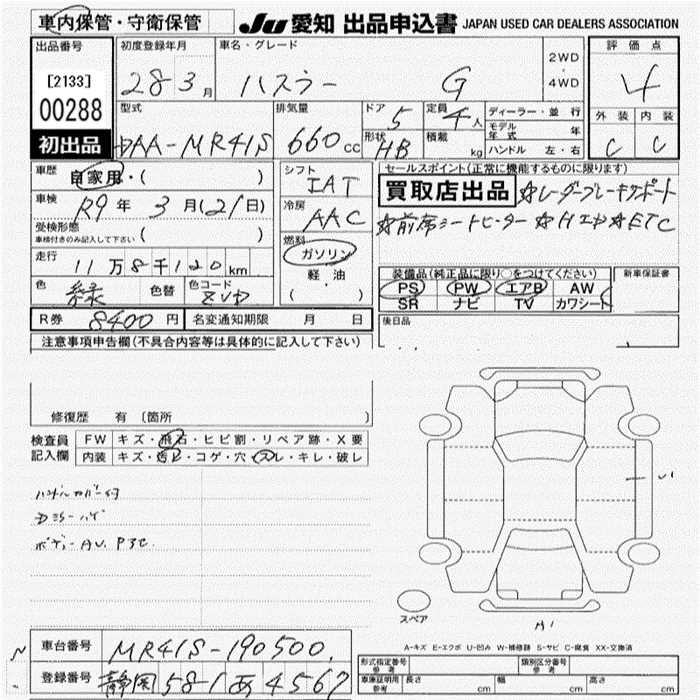 車内保管・守衛保管
JU 愛知 出品申込書 JAPAN USED CAR DEALERS ASSOCIATION
出品番号
[2133]
00288
初出品
初度登録年月
28 3月
車名・グレード
ハスラー G
2WD
・
4WD
評価点
4
外装 内装
C C
型式
DAA-MR41S
排気量
660cc
ドア
5
定員
4人
形状
HB
積載
kg
ディーラー・並行
モデル年式 年
ハンドル 左・右
車歴
自家用・( )
車検
R9年 3月(21日)
受検形態
車検付きのみ記入して下さい ( )
走行
11万8千120km
色
緑
色替
色コード
シフト
IAT
冷房
AAC
燃料
ガソリン
軽・油
( )
セールスポイント(正常に機能するものに限ります)
買取店出品 ☆レーダーブレーキサポート
☆前席シートヒーター ☆Hエアb ☆ETC
装備品(純正品に限り○をつけてください)
PS PW エアB AW
SR ナビ TV カワシート
新車保証書
後日品
R券 8400円
名変通知期限 月 日
注意事項申告欄(不具合内容等は具体的に記入して下さい)
修復歴 有〔箇所 〕
検査員記入欄
FW キズ・飛石・ヒビ割・リペア跡・X要
内装 キズ・汚レ・コゲ・穴・スレ・キレ・破レ
ハンドルカバー付
ボデー AU. P3C
スペア
A1
A-キズ E-エクボ U-凹み W-補修跡 S-サビ C-腐食 XX-交換済
車台番号 MR41S-190500
登録番号 静岡 581 あ 4567
形式指定番号 参考
類別区分番号 参考
車庫証明用 参考 長さ cm 幅 cm 高さ cm